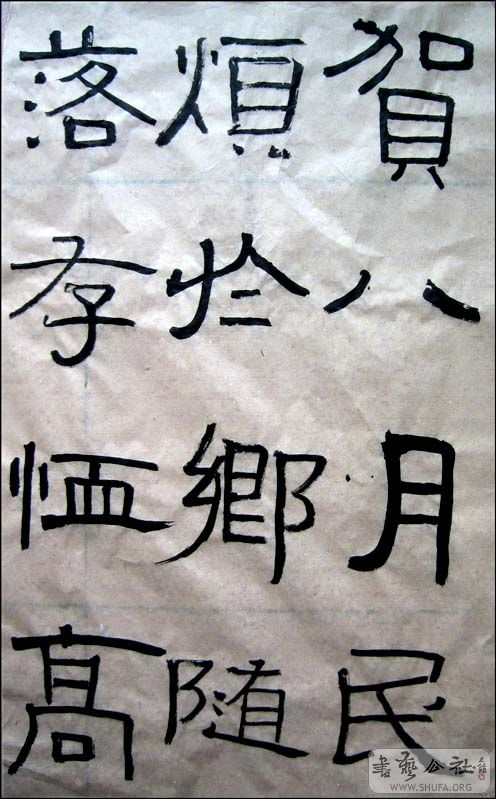 賀八月民
煩於鄉随
落存恤高
書藝公社
WWW.SHUFA.ORG